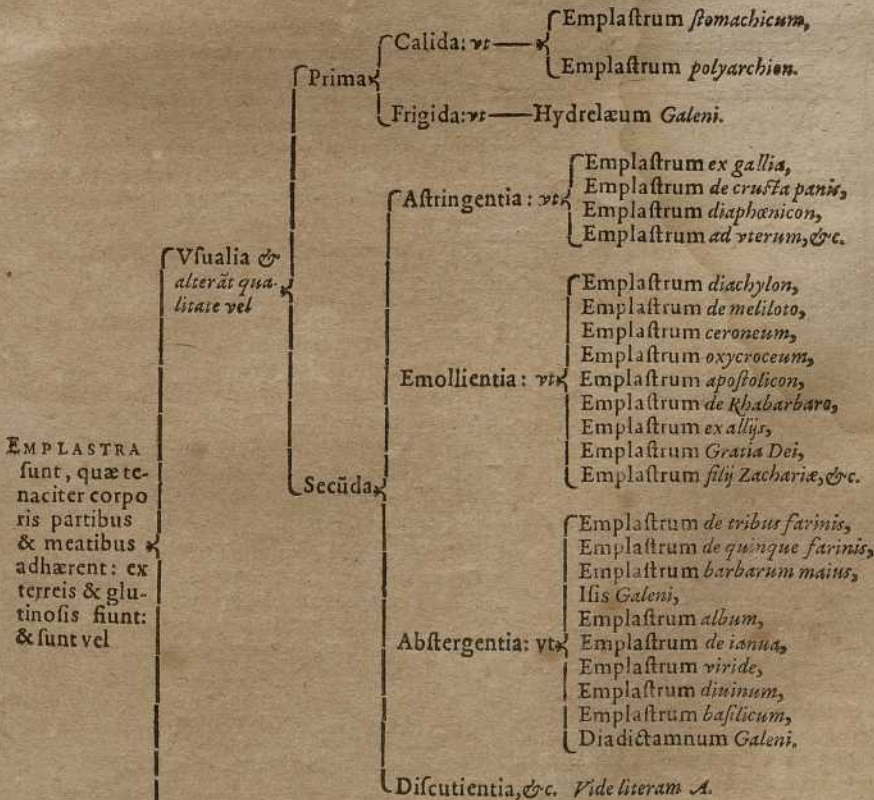 EMPLASTRA
ſunt, quæ te-
naciter corpo
ris partibus
& meatibus
adhærent: ex
terreis & glu-
tinoſis fiunt:
& ſunt vel
Vſualia &
alterāt qua-
litate vel
Prima
Calida: vt
Emplaſtrum ſtomachicum,
Emplaſtrum polyarchion.
Frigida: vt Hydrelæum Galeni.
Secūda
Aſtringentia: vt
Emplaſtrum ex gallia,
Emplaſtrum de cruſta panis,
Emplaſtrum diaphœnicon,
Emplaſtrum ad vterum, &c.
Emollientia: vt
Emplaſtrum diachylon,
Emplaſtrum de meliloto,
Emplaſtrum ceroneum,
Emplaſtrum oxycroceum,
Emplaſtrum apoſtolicon,
Emplaſtrum de Rhabarbaro,
Emplaſtrum ex allijs,
Emplaſtrum Gratia Dei,
Emplaſtrum filij Zachariæ, &c.
Abſtergentia: vt
Emplaſtrum de tribus farinis,
Emplaſtrum de quinque farinis,
Emplaſtrum barbarum maius,
Iſis Galeni,
Emplaſtrum album,
Emplaſtrum de ianua,
Emplaſtrum viride,
Emplaſtrum diuinum,
Emplaſtrum baſilicum,
Diadictamnum Galeni.
Diſcutientia, &c. Vide literam A.